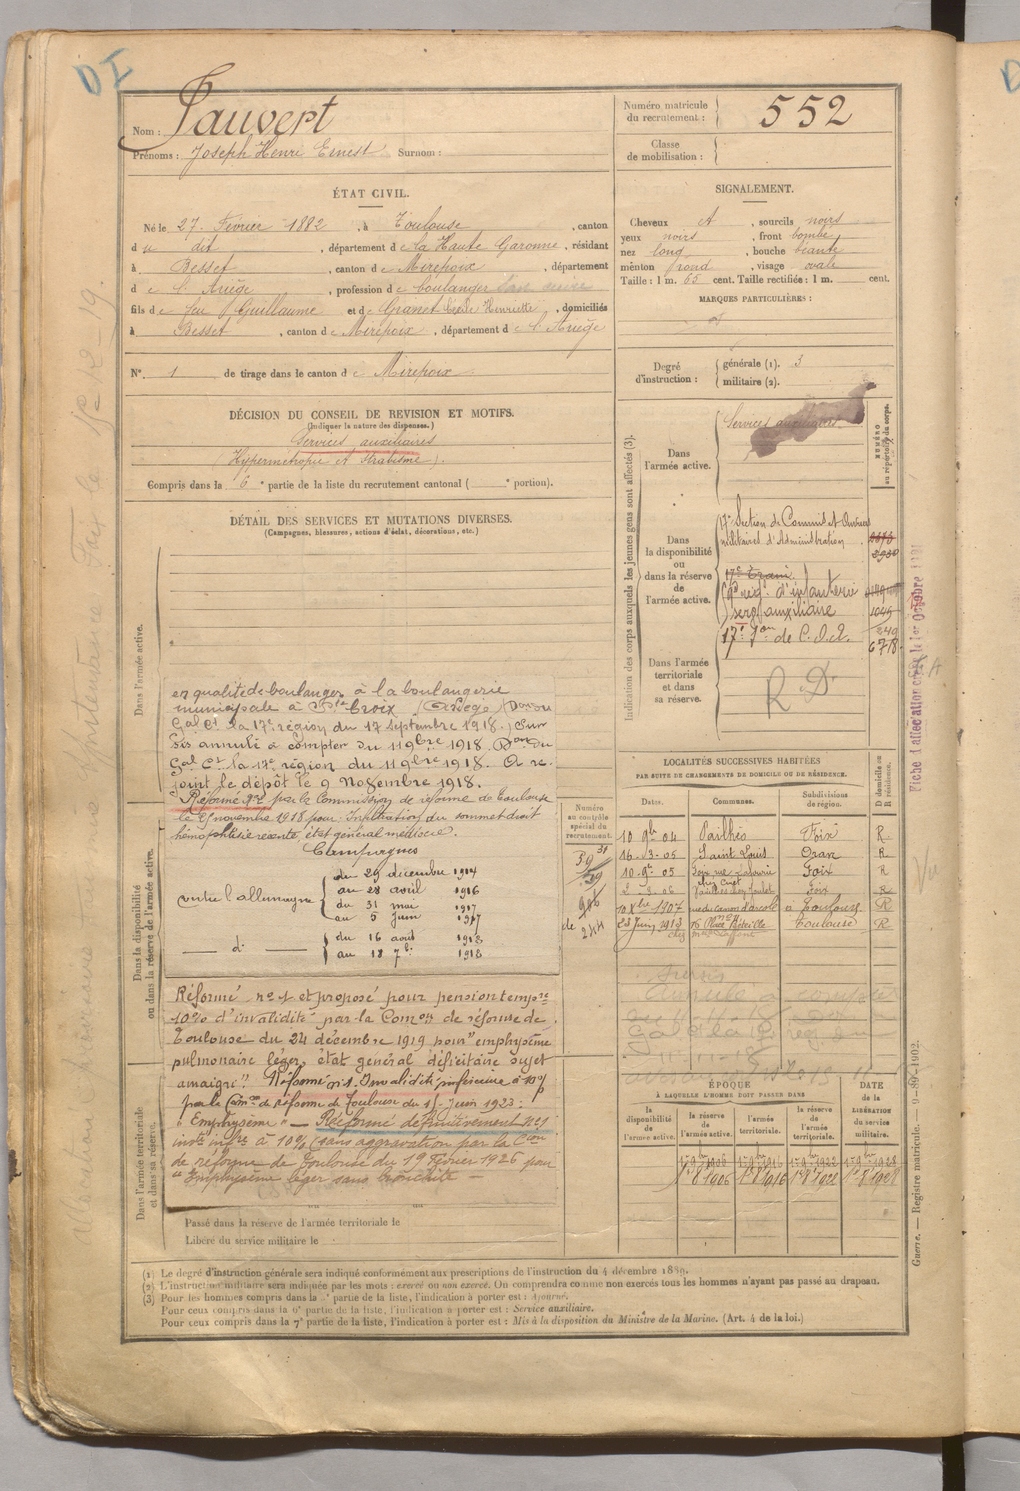 DI
Nom : Pauvert
Prénoms : Joseph Henri Ernest Surnom :
Numéro matricule du recrutement : 552
Classe de mobilisation :
ÉTAT CIVIL.
Né le 27 Février 1882, à Toulouse, canton
du dit, département de la Haute Garonne, résidant
à Besset, canton de Mirepoix, département
de l'Ariège, profession de boulanger
fils de feu Guillaume et de Granet Henriette, domiciliés
à Besset, canton de Mirepoix, département de l'Ariège
N° 1 de tirage dans le canton de Mirepoix
SIGNALEMENT.
Cheveux et, sourcils noirs
yeux noirs, front bombé
nez long, bouche béante
menton rond, visage ovale
Taille : 1 m. 65 cent. Taille rectifiée : 1 m. cent.
MARQUES PARTICULIÈRES :
Degré d'instruction : générale (1). 3
militaire (2).
DÉCISION DU CONSEIL DE REVISION ET MOTIFS.
(Indiquer la nature des dispenses.)
Services auxiliaires
(Hypermétropie et Strabisme).
Compris dans la 6e partie de la liste du recrutement cantonal ( e portion).
DÉTAIL DES SERVICES ET MUTATIONS DIVERSES.
(Campagnes, blessures, actions d'éclat, décorations, etc.)
Dans l'armée active.
en qualité de boulanger à la boulangerie
municipale à Ste Croix (Ariège) (Don du
Gal Ct la 17e région du 17 septembre 1918.) Sur
sis annulé à compter du 11 9bre 1918. Don du
Gal Ct la 17e région du 11 9bre 1918. A re-
joint le dépôt le 9 Novembre 1918.
Réformé par la Commission de réforme de Toulouse
le novembre 1918 pour : Infiltration du sommet droit
hémoptisie récente état général médiocre.
Campagnes
contre l'allemagne du 29 décembre 1914
au 28 avril 1916
du 31 mai 1917
au 5 juin 1917
d° du 16 août 1918
au 18 7bre 1918
Dans la disponibilité ou dans la réserve de l'armée active.
Réformé n° 1 et proposé pour pension tempre
10% d'invalidité par la Comon de réforme de
Toulouse du 24 décembre 1919 pour "emphysème
pulmonaire léger, état général déficitaire sujet
amaigri". Réformé n° 1. Invalidité inférieure à 10%
par la Comon de réforme de Toulouse du 1er Juin 1923.
"Emphysème" — Réformé définitivement n° 1
invté infre à 10% (sans aggravation par la Con
de réforme de Toulouse du 19 Février 1926 pour
"Emphysème léger sans bronchite —
Dans l'armée territoriale et dans sa réserve.
Passé dans la réserve de l'armée territoriale le
Libéré du service militaire le
Indication des corps auxquels les jeunes gens sont affectés (3).
NUMÉRO au répertoire du corps.
Dans l'armée active.
Services auxiliaires
Dans la disponibilité ou dans la réserve de l'armée active.
17e Section de Commis et Ouvriers
militaires d'Administration
17e Train
regt. d'infanterie
serv. auxiliaire
17e Son de C.O.A.
1045
249
6718
Dans l'armée territoriale et dans sa réserve.
R D
Fiche d'affectation
LOCALITÉS SUCCESSIVES HABITÉES
PAR SUITE DE CHANGEMENTS DE DOMICILE OU DE RÉSIDENCE.
Numéro au contrôle spécial du recrutement.
Dates. Communes. Subdivisions de région. D domicile ou R résidence.
10 9bre 04 Pailhès Foix R
16-3-05 Saint Louis Oran R
10-9-05 Foix R
2-3-06 Foix R
10 Xbre 1907 rue du canon d'arcole à Toulouse R
23 Juin 1913 Toulouse R
Vu
ÉPOQUE
À LAQUELLE L'HOMME DOIT PASSER DANS
la disponibilité de l'armée active. la réserve de l'armée active. l'armée territoriale. la réserve de l'armée territoriale. DATE de la LIBÉRATION du service militaire.
1er 9bre 1906 1er 9bre 1916 1er 9bre 1922 1er 9bre 1928
(1) Le degré d'instruction générale sera indiqué conformément aux prescriptions de l'instruction du 4 décembre 1889.
(2) L'instruction militaire sera indiquée par les mots : exercé ou non exercé. On comprendra comme non exercés tous les hommes n'ayant pas passé au drapeau.
(3) Pour les hommes compris dans la 5e partie de la liste, l'indication à porter est : Ajourné.
Pour ceux compris dans la 6e partie de la liste, l'indication à porter est : Service auxiliaire.
Pour ceux compris dans la 7e partie de la liste, l'indication à porter est : Mis à la disposition du Ministre de la Marine. (Art. 4 de la loi.)
Guerre. — Registre matricule.